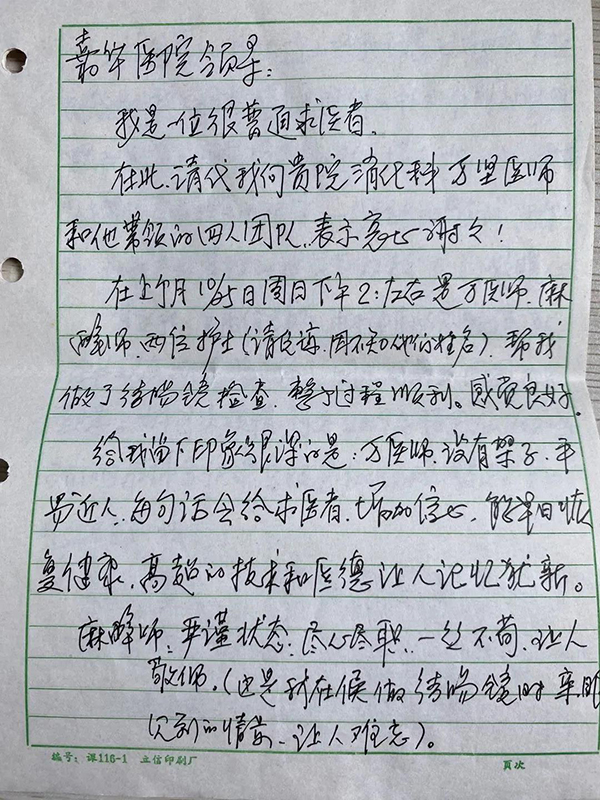 嘉华医院领导:
我是一位很普通求医者.
在此、请代我向贵院消化科万坚医师
和他带领的四人团队、表示衷心谢谢!
在上个月10/25日周日下午2:左右是万医师、麻
醉师、两位护士(请见谅、因不知他们姓名)、帮我
做了结肠镜检查、整个过程顺利。感觉良好.
给我留下印象很深的是:万医师、没有架子、平
易近人、每句话会给求医者、增加信心、能早日恢
复健康、高超的技术和医德让人记忆犹新。
麻醉师、严谨状态、尽心尽职、一丝不苟、让人
敬佩。(这是我在候做结肠镜时亲眼
见到的情景、让人难忘)。
编号: 课116-1 立信印刷厂 頁次